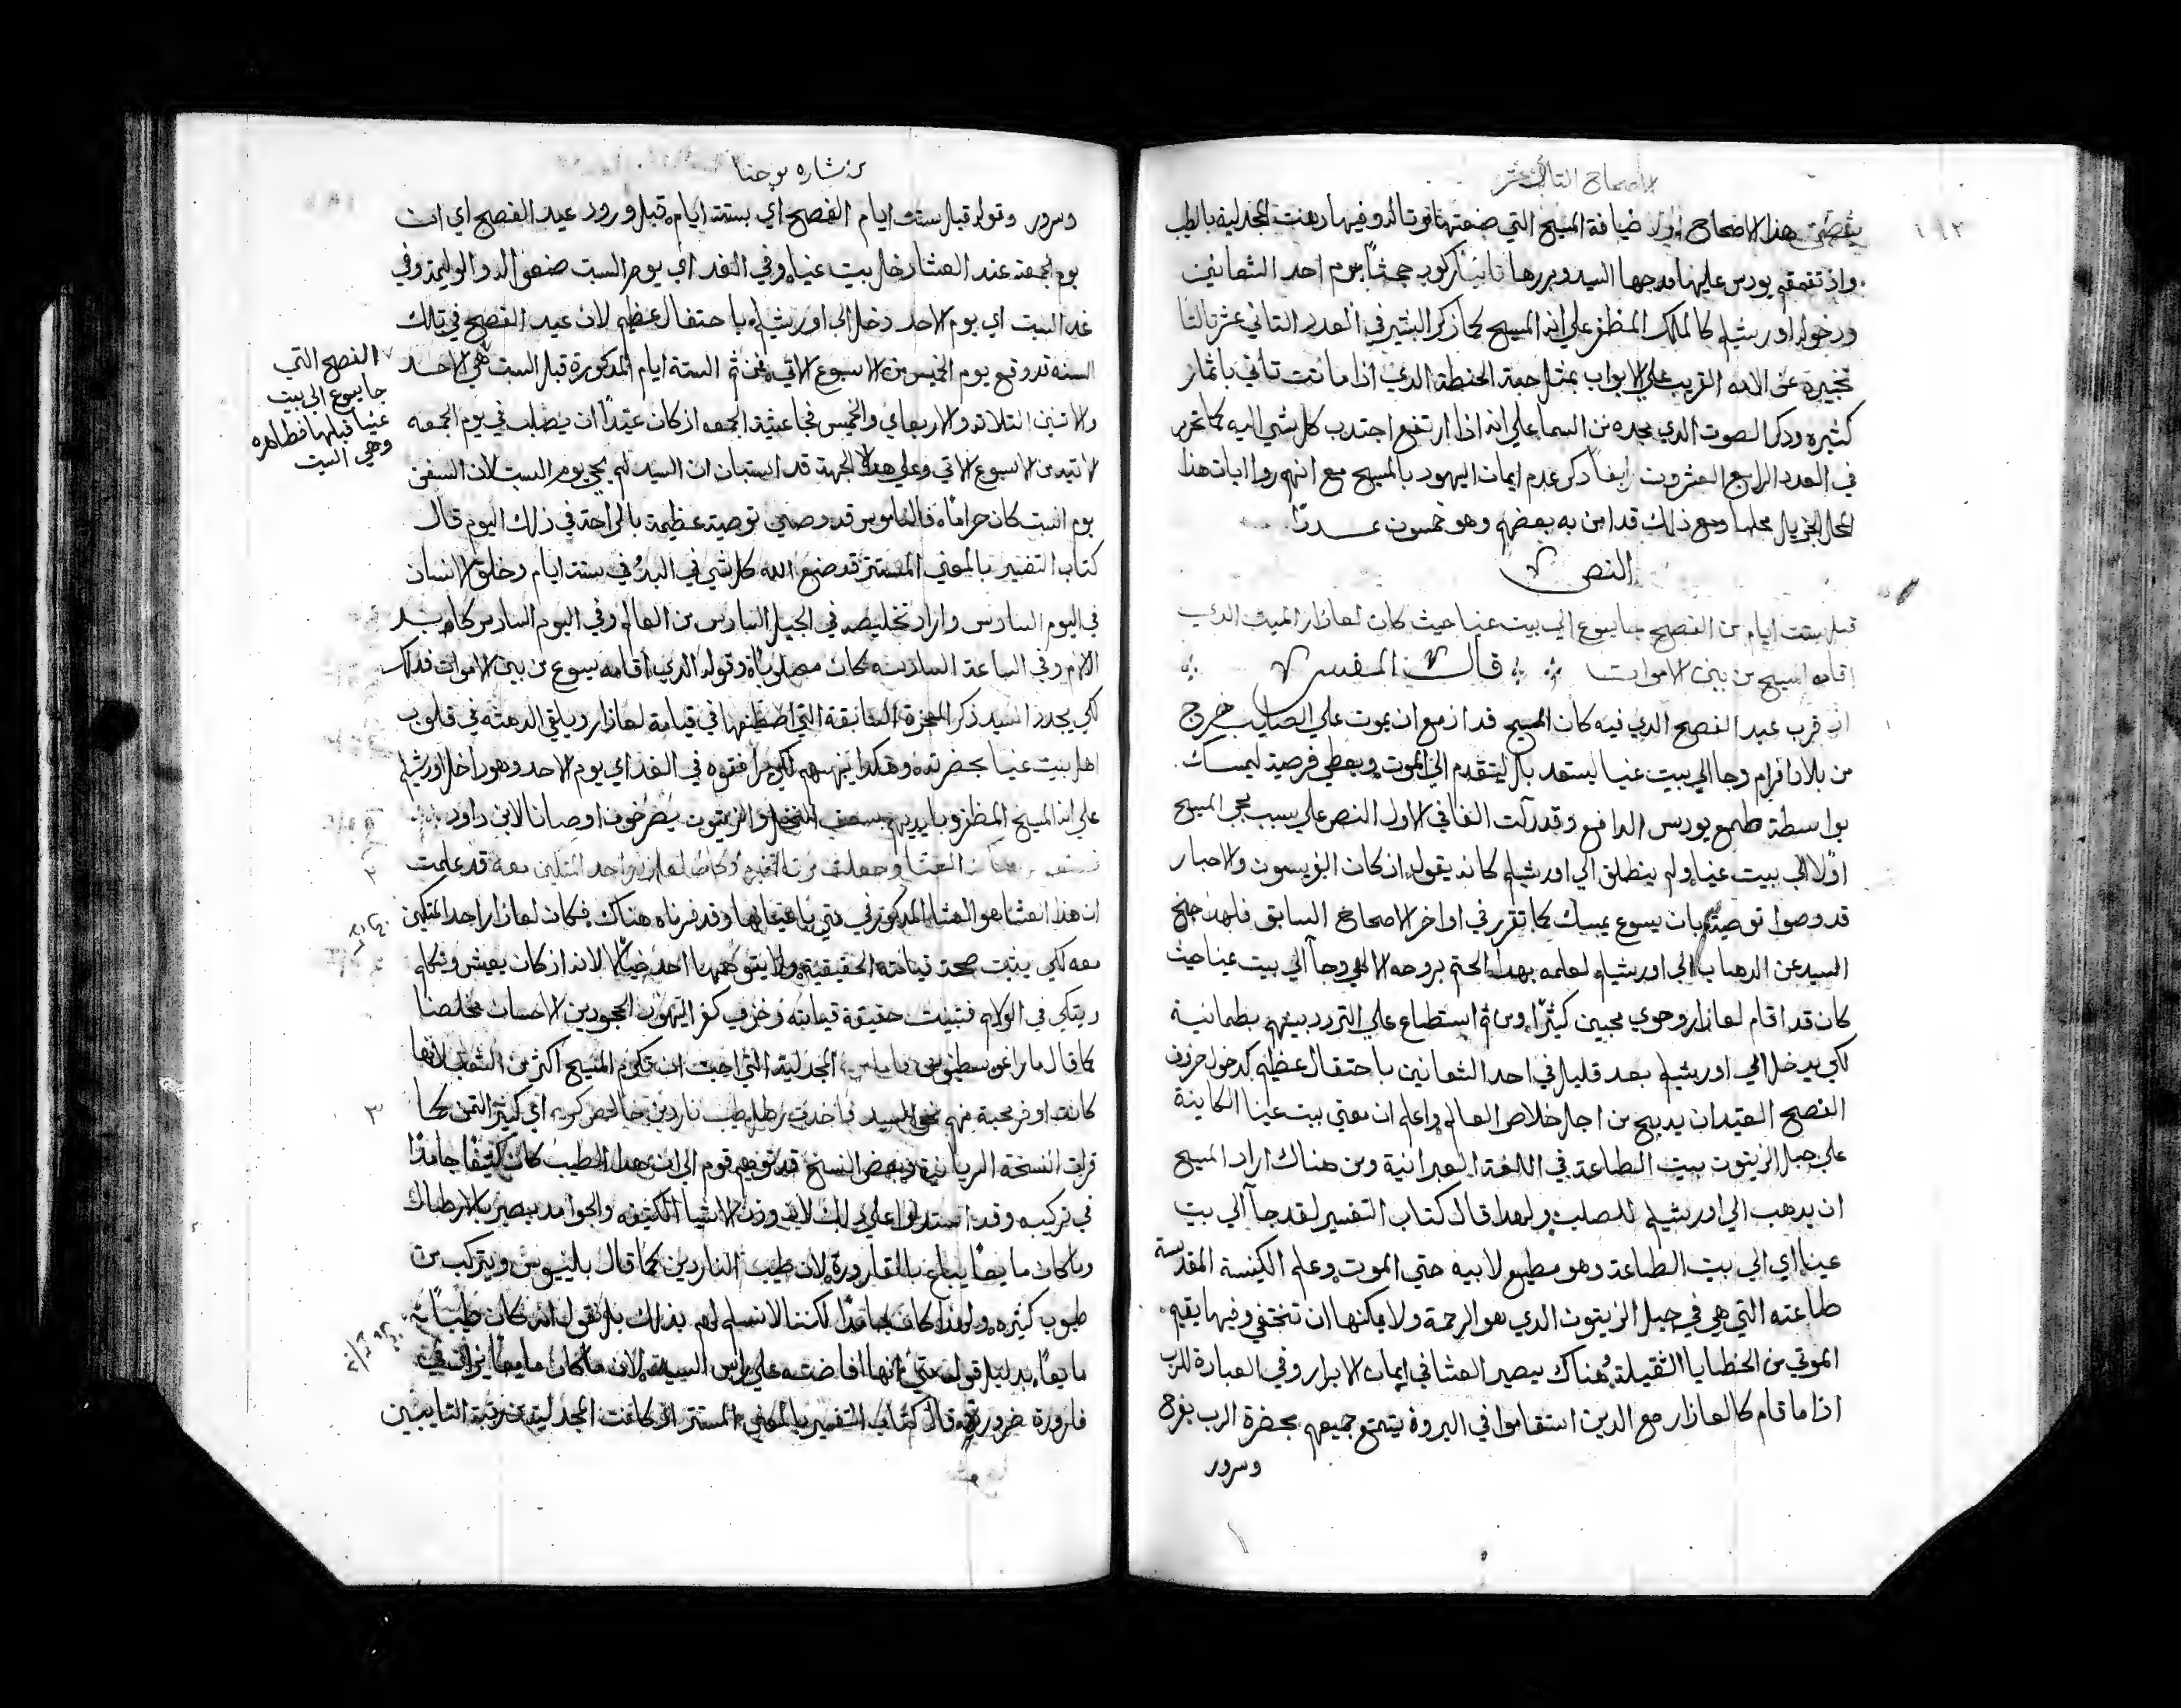 الاصحاح التاني عشر
١٩٢
يتضمن هذا الاصحاح اولا ضيافة المسيح التي صنعتها له وفيها دهنت المجدلية بالطيب
واذ تقمقم يودس عليها مدحها السيد وبررها تانيا ركوب جحشا يوم احد الشعانين
ودخوله اورشليم كالملك المظفر علي انه المسيح كما ذكر البشير في العدد التاني عشر تالتا
تخبيره عن الامه القريب علي الابواب بمثل حبة الحنطة الدي اذا ماتت تاتي باثمار
كثيره وذكر الصوت الدي مجده من السما علي انه اذا ارتفع اجتدب كل شي اليه كما تحرر
في العدد الرابع العشرون ايضا ذكر عدم ايمان اليهود بالمسيح مع انهم روا ايات هذا
الجزيل محلها ومع ذلك قد امن به بعضهم وهو خمسون عددا
النص
قبل ستت ايام من الفصح جا يسوع الي بيت عنيا حيث كان لعازار الميت الدي
اقامه المسيح من بين الاموات قال المفسر
اذ قرب عيد الفصح الدي فيه كان المسيح قد ازمع ان يموت علي الصليب خرج
من بلاد افرام وجا الي بيت عنيا ليستعد بل ليتقدم الي الموت ويعطي فرصة ليمسك
بواسطة طمع يودس الدافع وقد دلت الفا في الاول النص علي سبب مجي المسيح
اولا الي بيت عنيا ولم ينطلق الي اورشليم كانه يقول اذ كان الفريسيون والاحبار
قد وصوا توصية بان يسوع يمسك كما تقرر في اواخر الاصحاح السابق فلهذا جنح
السيد عن الدهاب الي اورشليم لعلمه بهدا الحتم بروحه الالهي وجا الي بيت عنيا حيث
كان قد اقام لعازار وحوي محبين كثيرا ومن ثم استطاع علي التردد بينهم بطمانية
لكي يدخل الي اورشليم بعد قليل في احد الشعانين باحتفال عظيم كدخول خروف
الفصح العتيد ان يدبح من اجل خلاص العالم واعلم ان معني بيت عنيا الكاينة
علي جبل الزيتون بيت الطاعة في اللغة العبرانية ومن هناك اراد المسيح
ان يدهب الي اورشليم للصلب ولهدا قال كتاب التفسير لقد جا الي بيت
عنيا اي الي بيت الطاعة وهو مطيع لابيه حتي الموت وعلم الكنيسة المقدسة
طاعته التي هي في جبل الزيتون الدي هو الرحمة ولا يمكنها ان تختفي وفيها يقيم
الموتي من الخطايا الثقيلة وهناك يصير العشا في ايمان الابرار وفي العبادة للرب
اذا ما قام كالعازار مع الدين استقاموا في البر وهو يتمتع جميعهم بحضرة الرب بفرح
وسرور
بشاره يوحنا
وسرور وقوله قبل ستت ايام الفصح اي بستت ايام قبل ورود عيد الفصح اي ان
يوم الجمعة عند العشا دخل بيت عنيا وفي الغد اي يوم السبت صنعوا له الوليمة وفي
غد السبت اي يوم الاحد دخل الي اورشليم باحتفال عظيم لان عيد الفصح في تلك
السنه قد وقع يوم الخميس من الاسبوع الاتي فمن ثم الستة ايام المذكورة قبل السبت هي الاحد
والاتنين التلاتة والاربعاي والخميس فجا عشية الجمعه اذ كان عتيدا ان يصلب في يوم الجمعه
الاتية من الاسبوع الاتي وعلي هده الجهة قد استبان ان السيد لم يجي يوم السبت لان السفر
يوم السبت كان حراما فالناموس قد وصي توصية عظيمة بالراحة في ذلك اليوم قال
كتاب التفسير بالمعني المستتر قد صنع الله كل شي في البدء في ستت ايام وخلق الانسان
في اليوم السادس واراد تخليصه في الجيل السادس من العالم وفي اليوم السادس كابد
الالام وفي الساعة السادسه كان مصلوبا وقوله الدي اقامه يسوع من بين الاموات فذلك
لكي يجدد السيد ذكر المعجزة الفايقة التي اصطنعها في قيامة لعازار ويلقي الدهشه في قلوب
اهل بيت عنيا بحضرته وهكدا ينهضهم لكي يرافقوه في الغد اي يوم الاحد وهو داخل اورشليم
علي انه المسيح المظفر وبايديهم سعف النخل والزيتون يصرخون اوصانا لابن داود
العشا وجعلت مرتا تخدم وكان لعازر احد المتكين معه قد علمت
ان هذا العشا هو العشا المدكور في متي وقد فسرناه هناك فكان لعازار احد المتكين
معه لكي يثبت صحة قيامته الحقيقية ولا يتوهمها احد خيالا لانه اذ كان يعيش ويتكلم
ويتكي في الولايم فتثبت حقيقة قيامته وخزي كفر اليهود المجحودين الاحسان مخلصنا
كما قال ماراغوسطينوس المجدلية التي احبت ان تكرم المسيح اكتر من الشعب لانها
كانت اوفر محبة منهم نحو السيد فاخدت رطل طيب ناردين خالص كريم اي كثير الثمن كما
قرات النسخة السريانية وبعض النسخ قد توهم قوم الي ان هدا الطيب كان كثيفا جامدا
في تركيبه وقد استدلوا علي ذلك لان وزن الاشيا الكثيفه والجوامد يصير بالارطال
وما كان مايعا يباع بالقارورة لان طيب الناردين كما قال بلينيوس ويتركب من
طيوب كثيره ولهذا كان جامدا لكننا لا نسلم لهم بذلك بل نقول انه كان طيبا
مايعا بدليل قوله متي انها افاضته علي راس السيد لان ما كان مايعا يراق في
قارورة ضرورة قال كتاب التفسير بالمعني المستتر اذ كانت المجدلية من رتبة التايبين
الفصح التي
جا يسوع الي بيت
عنيا قبلها فظاهره
وهي السبت
٢
٣